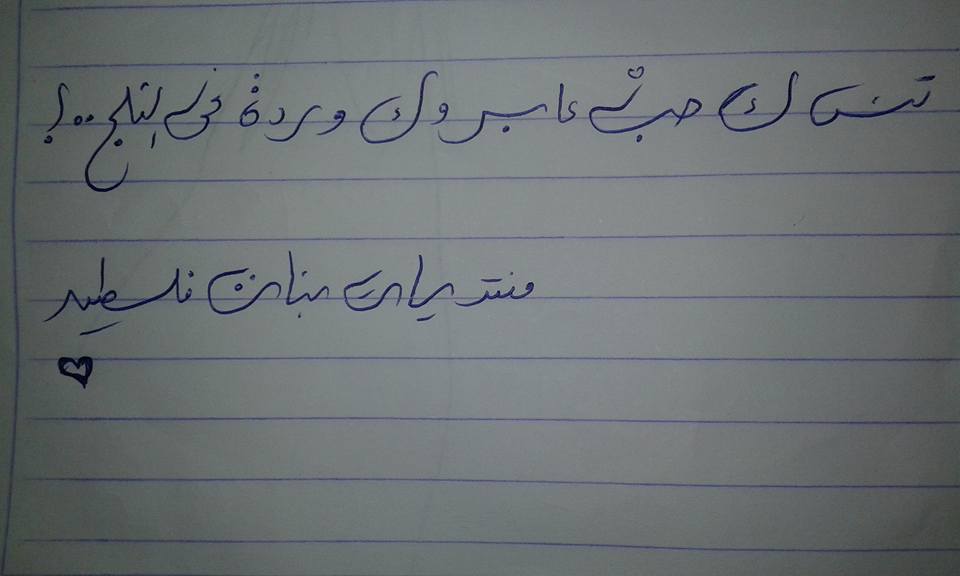 تنساك حبٍ عابر وك وردة في الثلج..!؟
منتديات بنات فلسطين
♥